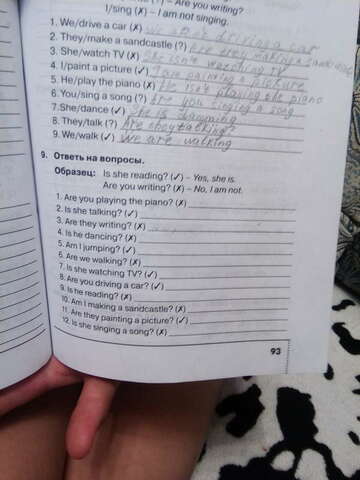 – Are you writing?
I/sing (✗) – I am not singing.
1. We/drive a car (✗) driving a car
2. They/make a sandcastle (?) Are they making a sandcastle
3. She/watch TV (✗) She isn't watching TV
4. I/paint a picture (✓) I am painting a picture
5. He/play the piano (✗) He isn't playing the piano
6. You/sing a song (?) Are you singing a song
7. She/dance (✓) She is
8. They/talk (?) Are they talking?
9. We/walk (✓) We are walking
9. Ответь на вопросы.
Образец: Is she reading? (✓) – Yes, she is.
Are you writing? (✗) – No, I am not.
1. Are you playing the piano? (✗)
2. Is she talking? (✓)
3. Are they writing? (✗)
4. Is he dancing? (✗)
5. Am I jumping? (✓)
6. Are we walking? (✗)
7. Is she watching TV? (✓)
8. Are you driving a car? (✓)
9. Is he reading? (✗)
10. Am I making a sandcastle? (✗)
11. Are they painting a picture? (✓)
12. Is she singing a song? (✗)
93